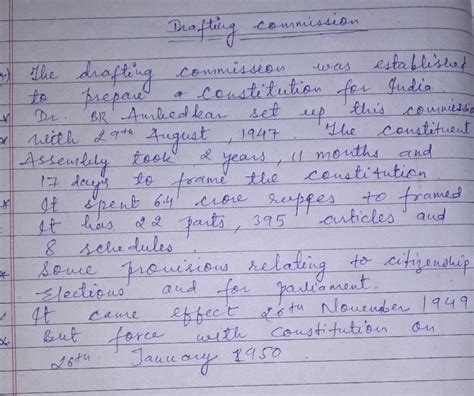 Drafting commission
The drafting commission was established
to prepare a constitution for India
Dr. BR Ambedkar set up this commission
with 29th August, 1947. The constituent
Assembly took 2 years, 11 months and
17 days to frame the constitution
It spent 64 crore ruppes to framed
It has 22 parts, 395 articles and
8 schedules
Some provisions relating to citizenship
Elections and for parliament.
It came effect 26th November 1949
But force with constitution on
26th January 1950